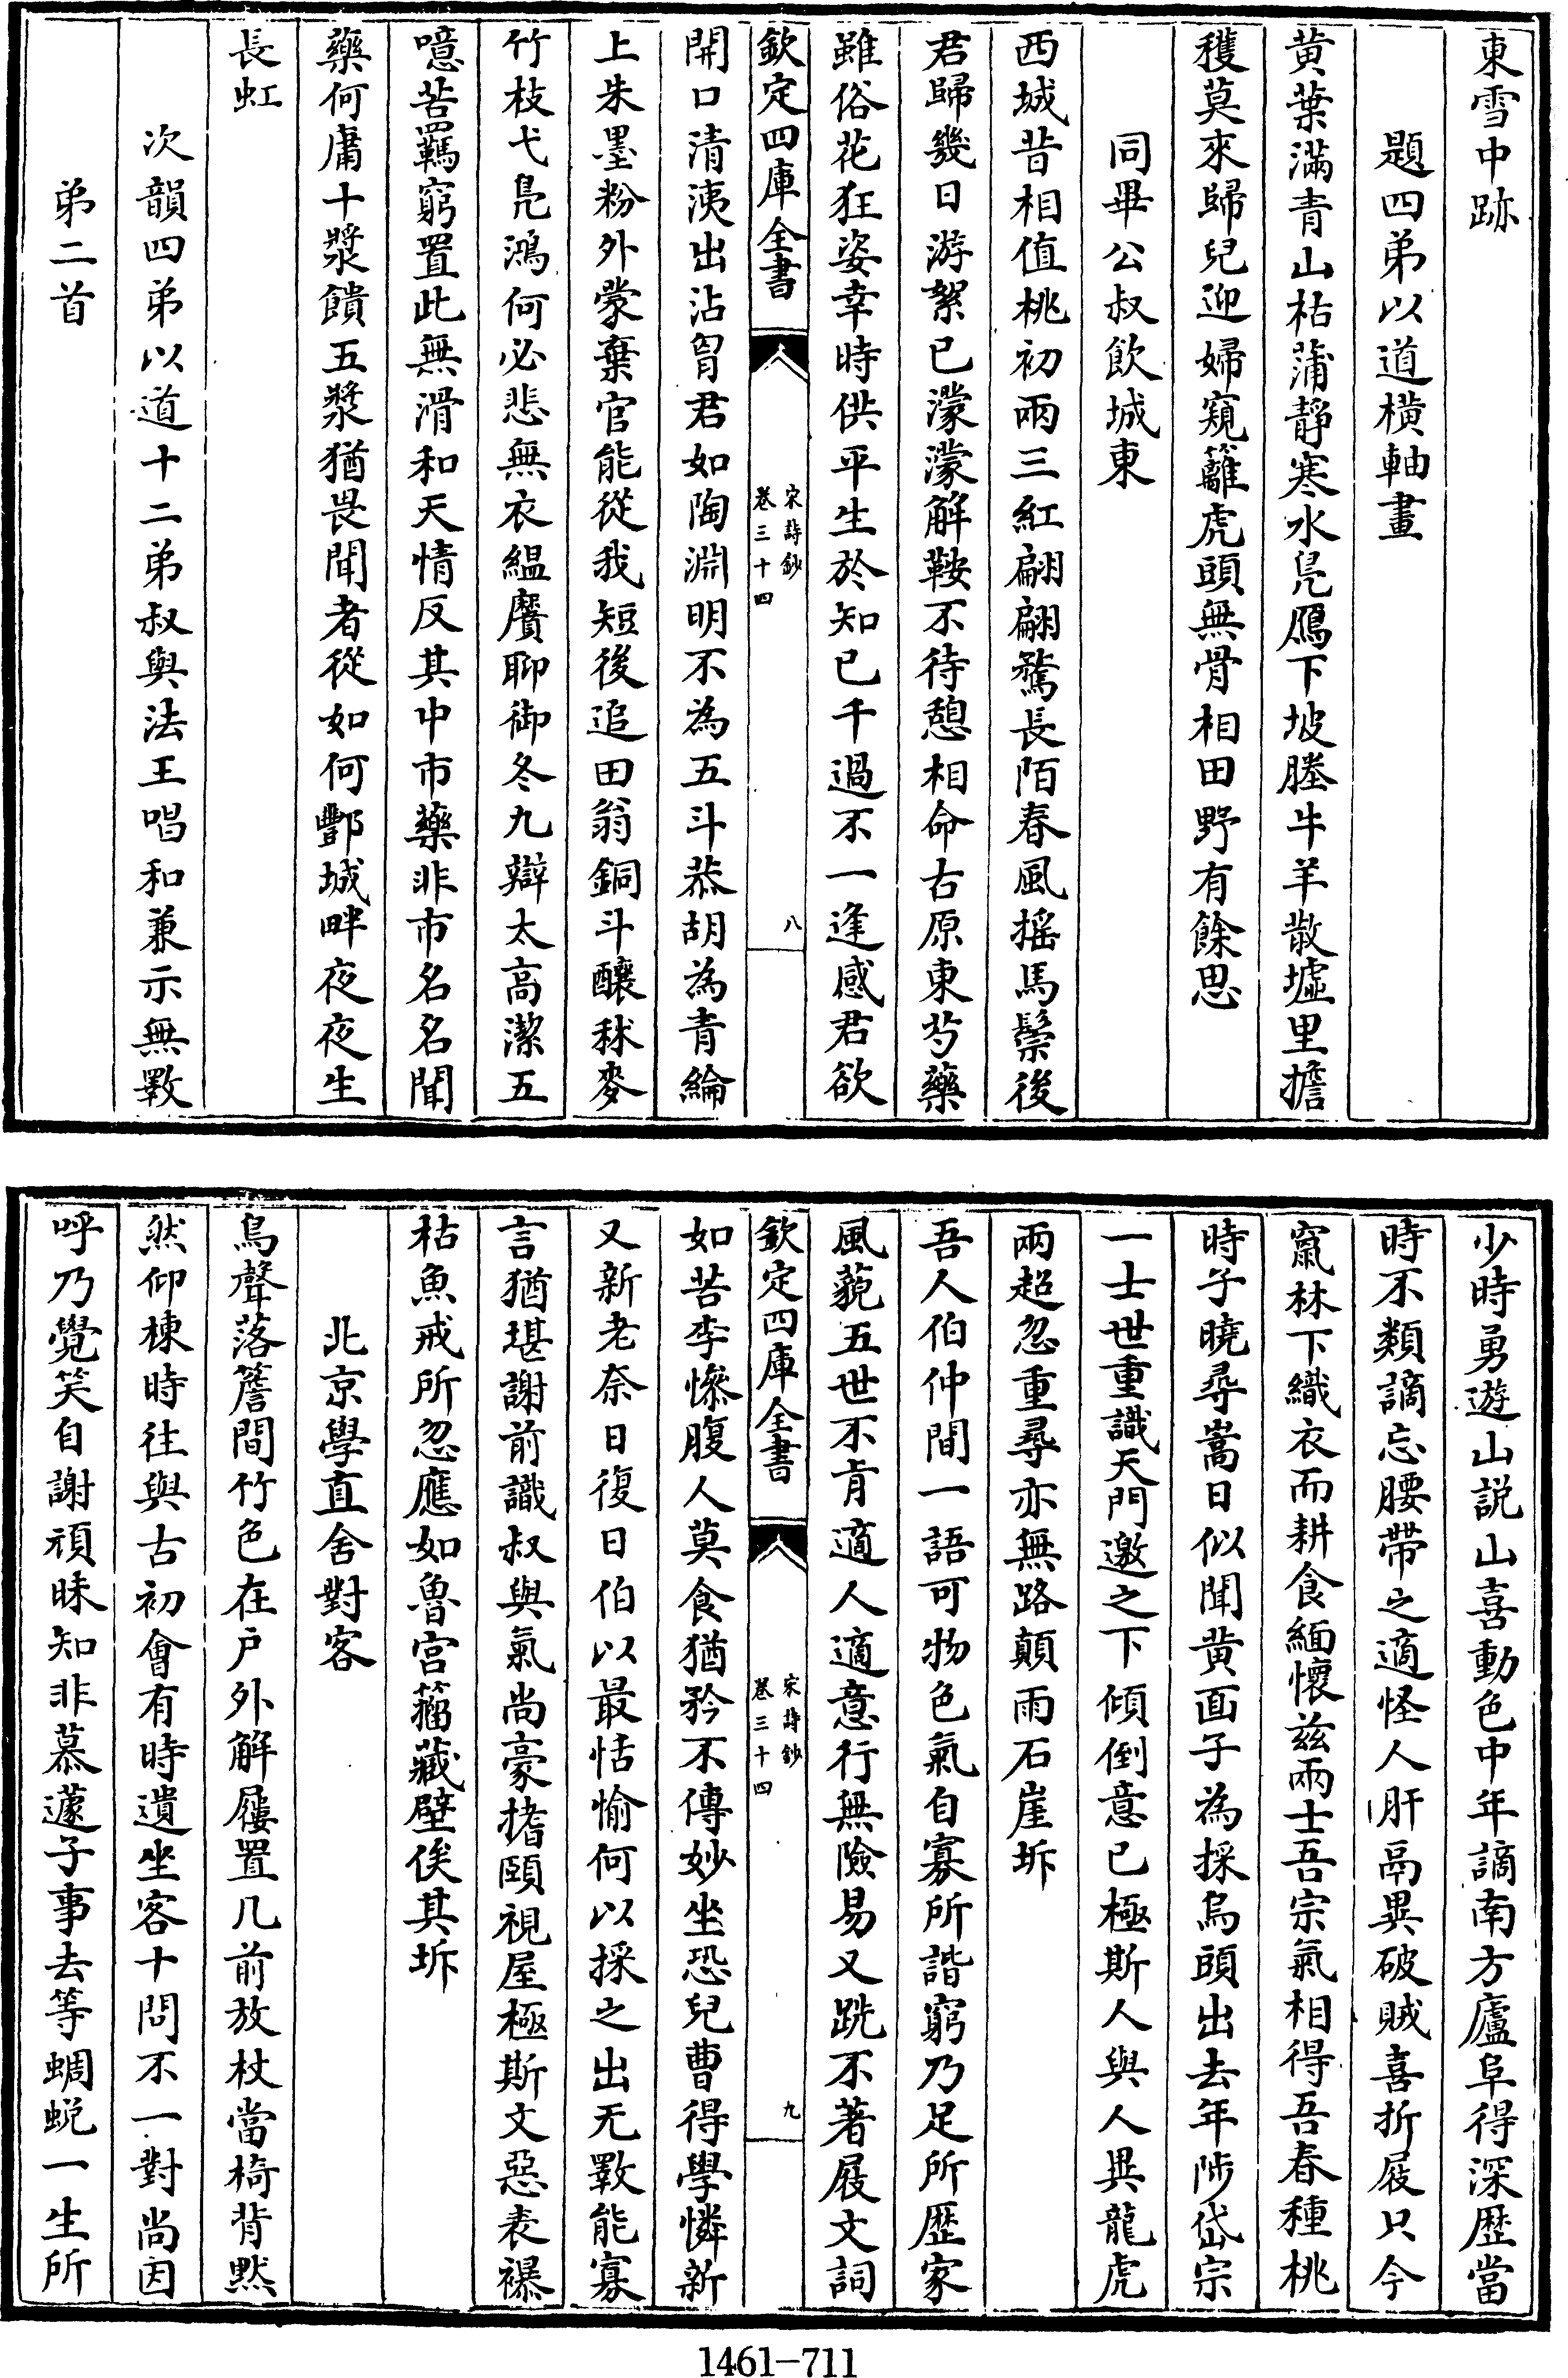 東雪中跡
題四弟以道橫軸畫
黃葉滿青山枯蒲靜寒水鳬鴈下坡塍牛羊散墟里擔
穫莫來歸兒迎婦窺籬虎頭無骨相田野有餘思
同畢公叔飲城東
西城昔相值桃初兩三紅翩翩驚長陌春風搖馬鬃後
君歸幾日游絮已濛濛解鞍不待憩相命古原東芍藥
雖俗花狂姿幸時供平生於知已千過不一逢感君欲
欽定四庫全書
宋詩鈔
卷三十四
八
開口清洟出沾胷君如陶淵明不為五斗恭胡為青綸
上朱墨粉外蒙棄官能從我短後追田翁銅斗釀秫麥
竹枝弋鳬鴻何必悲無衣緼黂聊御冬九辯太高潔五
噫苦羈窮置此無滑和天情反其中市藥非市名名聞
藥何庸十漿饋五漿猶畏聞者從如何酆城畔夜夜生
長虹
次韻四弟以道十二弟叔與法王唱和兼示無斁
弟二首
少時勇遊山説山喜動色中年謫南方廬阜得深歴當
時不類謫忘腰帶之適怪人肝鬲異破賊喜折屐只今
竄林下織衣而耕食緬懷兹兩士吾宗氣相得吾春種桃
時子曉尋嵩日似聞黃面子為採烏頭出去年陟岱宗
一士世重識天門邀之下傾倒意已極斯人與人異龍虎
兩超忽重尋亦無路顛雨石崖坼
吾人伯仲間一語可物色氣自寡所諧窮乃足所歴家
風藐五世不肯適人適意行無險易又跣不著屐文詞
欽定四庫全書
宋詩鈔
卷三十四
九
如苦李慘腹人莫食猶矜不傳妙坐恐兒曹得學憐新
又新老奈日復日伯以最恬愉何以採之出无斁能寡
言猶堪謝前識叔與氣尚豪搘頤視屋極斯文惡表襮
枯魚戒所忽應如魯宫籀藏壁俟其坼
北京學直舍對客
鳥聲落簷間竹色在户外解屨置几前放杖當椅背黙
然仰棟時往與古初會有時遺坐客十問不一對尚因
呼乃覺笑自謝頑昧知非慕蘧子事去等蜩蜕一生所
1461-711